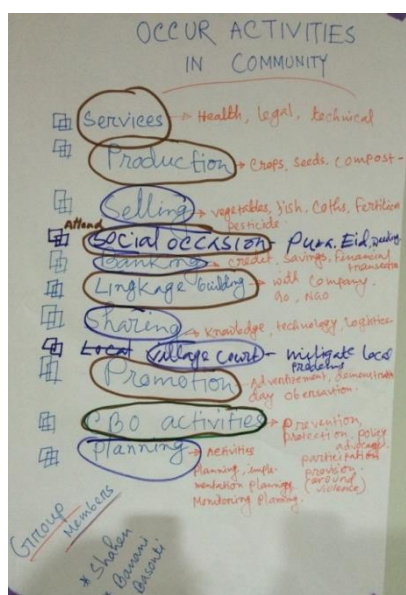 OCCUR ACTIVITIES
IN COMMUNITY
Services → Health, legal, technical
Production → Crops, seeds, compost-
Selling → vegetables, fish, Coths, Fertilizer
pesticide.
Attend
Social occasion - Puza, Eid, wedding
Banking → credit, savings, financial
transaction
Lingkage building → with company,
GO, NGO
Sharing → Knowledge, technology, logistics.
Local village court - mitigate local
problems
Promotion → Advertisement, demonstration
day obersvation.
CBO activities → Prevention,
protection, policy
advocacy
participation
provision
(around
violence)
planning → Activities
planning, imple-
mentation planning
Monitoring planing.
Group
Members
* Shahen
Banani
Basonti